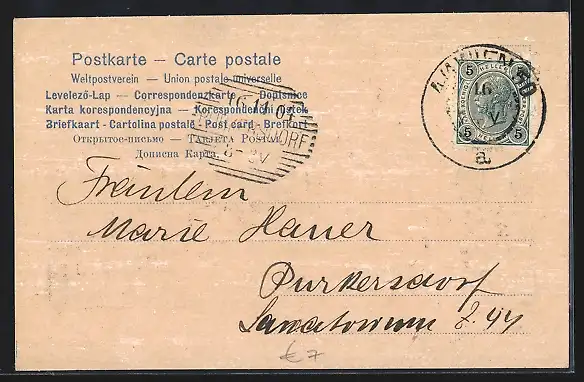 Postkarte — Carte postale
Weltpostverein — Union postale universelle
Levelező-Lap — Correspondenzkarte — Dopisnice
Karta korespondencyjna — Korespondenční lístek
Briefkaart - Cartolina postale - Post card - Brefkort
Открытое-письмо — Tarjeta Postal
Дописна Карта
16.11.04
8- V
5 HELLER 5
5 5
16
V
a
Fräulein
Marie Hauer
Purkersdorf
Sanatorium Z. 44
€ 7